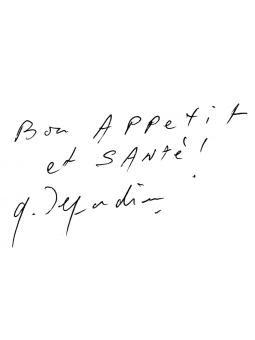 Bon APPetit
et SANté!
g. Depardieu